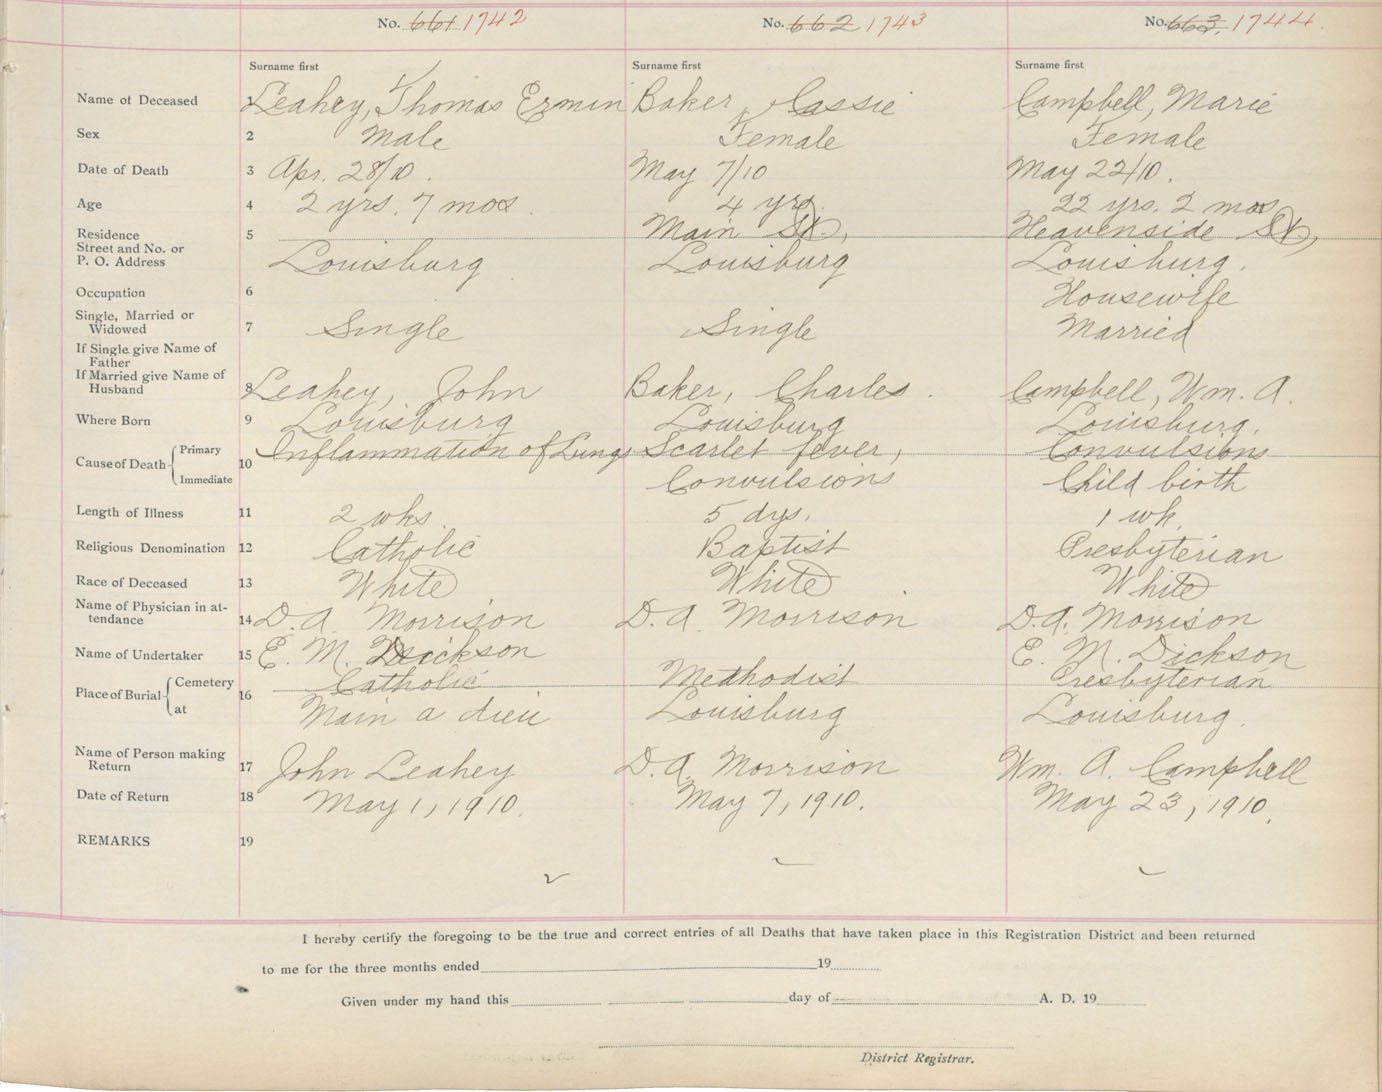 No. 661 1742 No. 662 1743 No. 663. 1744.
Surname first Surname first Surname first
Name of Deceased 1 Leahey, Thomas Ermin Baker, Cassie Campbell, Marie
Sex 2 Male Female Female
Date of Death 3 Apr. 28/10. May 7/10 May 22/10.
Age 4 2 yrs. 7 mos. 4 yrs. 22 yrs. 2 mos
Residence 5 Main St., Heavenside St.,
Street and No. or
P. O. Address Louisburg Louisburg Louisburg.
Occupation 6 Housewife
Single, Married or
Widowed 7 Single Single Married
If Single give Name of
Father
If Married give Name of
Husband 8 Leahey, John Baker, Charles. Campbell, Wm. A.
Where Born 9 Louisburg Louisburg Louisburg.
Cause of Death Primary 10 Inflammation of Lungs Scarlet fever, Convulsions
Immediate Convulsions Child birth
Length of Illness 11 2 wks 5 dys. 1 wk.
Religious Denomination 12 Catholic Baptist Presbyterian
Race of Deceased 13 White White White
Name of Physician in at-
tendance 14 D. A. Morrison D. A. Morrison D. A. Morrison
Name of Undertaker 15 E. M. Dickson E. M. Dickson
Place of Burial Cemetery 16 Catholic Methodist Presbyterian
at Main a dieu Louisburg Louisburg.
Name of Person making
Return 17 John Leahey D. A. Morrison Wm. A. Campbell
Date of Return 18 May 1, 1910. May 7, 1910. May 23, 1910.
REMARKS 19
I hereby certify the foregoing to be the true and correct entries of all Deaths that have taken place in this Registration District and been returned
to me for the three months ended 19
Given under my hand this day of A. D. 19
District Registrar.